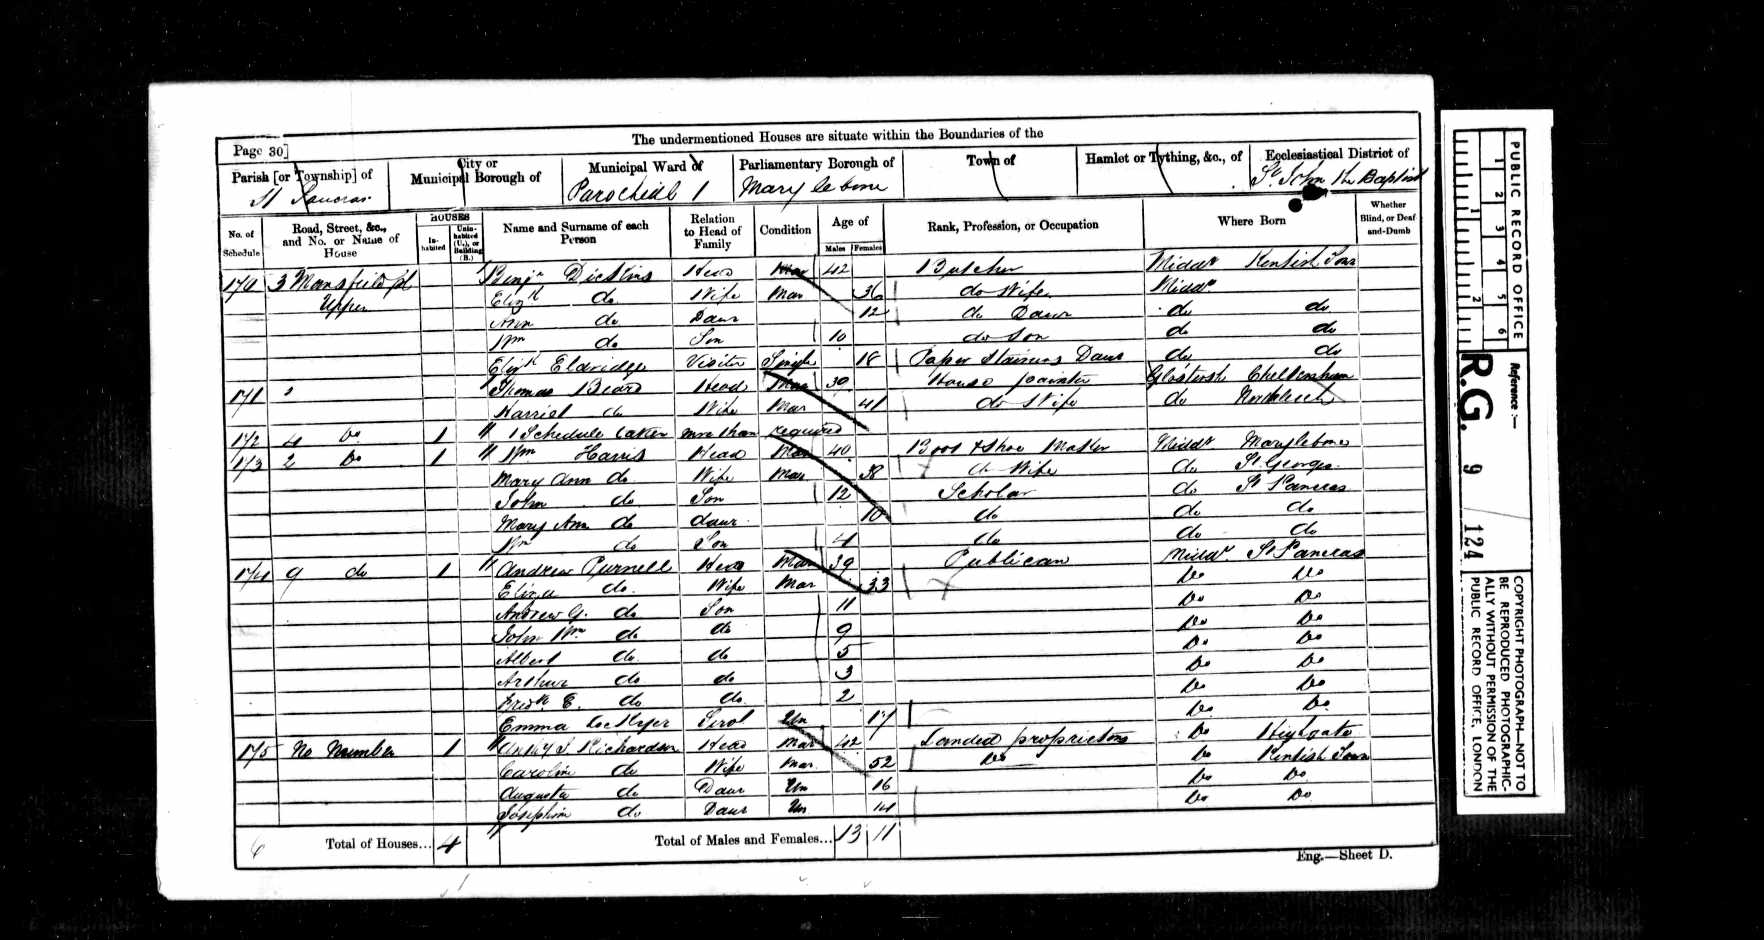 The undermentioned Houses are situate within the Boundaries of the
Page 30]
Parish [or Township] of
St Pancras
City or Municipal Borough of
Municipal Ward of
Parochial 1
Parliamentary Borough of
Marylebone
Town of
Hamlet or Tything, &c., of
Ecclesiastical District of
St. John the Baptist
No. of Schedule
Road, Street, &c., and No. or Name of House
HOUSES
In-habited
Unin-habited (U.), or Building (B.)
Name and Surname of each Person
Relation to Head of Family
Condition
Age of
Males
Females
Rank, Profession, or Occupation
Where Born
Whether Blind, or Deaf-and-Dumb
170 3 Mansfield pl Benjn Head Mar 42 Butcher Middx Kentish Town
Upper Elizth do Wife Mar 36 do Wife Middx
Ann do Daur 12 do Daur do do
Wm do Son 10 do Son do do
Elizth Eldridge Visitor Single 18 Paper Stainers Daur do do
171 Thomas Beard Head Mar 39 House painter Glostersh Cheltenham
Harriet do Wife Mar 41 do Wife do
172 4 Do 1 1 Schedule taken more than required
173 2 Do 1 Wm Harris Head Mar 40 Boot & Shoe Maker Middx Marylebone
Mary Ann do Wife Mar 38 do Wife do St Georges
John do Son 12 Scholar do St Pancras
Mary Ann do daur 10 do do do
Wm do Son 4 do do do
174 9 do 1 Andrew Purnell Head Mar 39 Publican Middx St Pancras
Eliza do Wife Mar 33 Do Do
Andrew G. do Son 11 Do Do
John Wm do do 9 Do Do
Albert do do 5 Do Do
Arthur do do 3 Do Do
Fredk E. do do 2 Do Do
Emma Servt Un 17 Do Do
175 No Number 1 Richardson Head Mar 42 Landed proprietor Do Highgate
Caroline do Wife Mar 52 Do Do Kentish Town
Augusta do Daur Un 16 Do Do
Josephine do Daur Un 14 Do Do
Total of Houses... 4
Total of Males and Females... 13 11
Eng.—Sheet D.
PUBLIC RECORD OFFICE
1 2 3 4 5 6
1 2
Reference :—
R.G. 9 / 124
COPYRIGHT PHOTOGRAPH—NOT TO BE REPRODUCED PHOTOGRAPHIC-ALLY WITHOUT PERMISSION OF THE PUBLIC RECORD OFFICE, LONDON